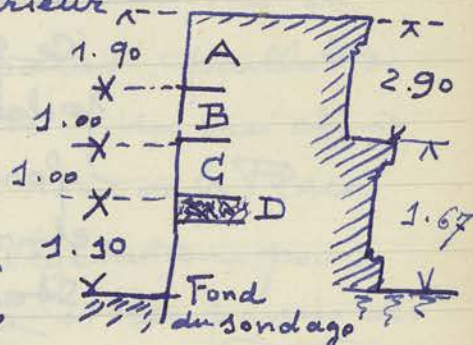 érieur
A
1.90
2.90
B
1.00
C
1.00
D
1.67
1.10
Fond
du sondage